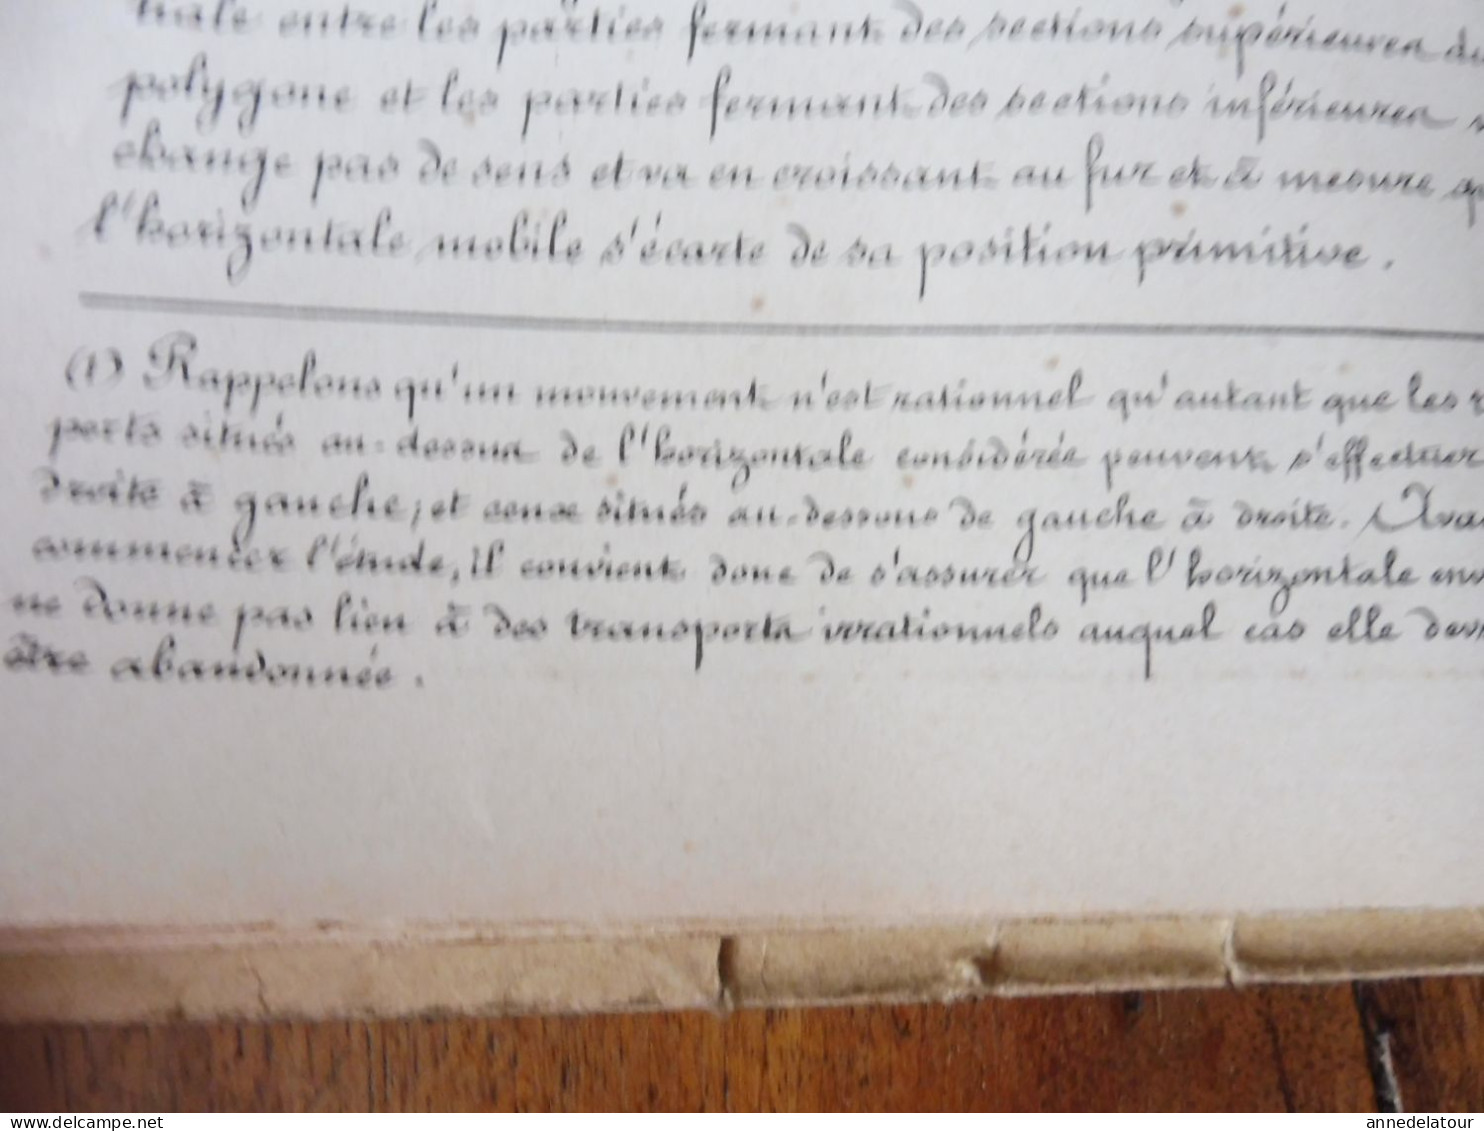 tiale entre les parties fermant des sections supérieures du
polygone et les parties fermant des sections inférieures
change pas de sens et va en croissant au fur et à mesure
l'horizontale mobile s'écarte de sa position primitive.
(1) Rappelons qu'un mouvement n'est rationnel qu'autant que les
ports situés au-dessus de l'horizontale considérée peuvent s'effectuer
droite à gauche, et ceux situés au-dessous de gauche à droite. Ava
commencer l'étude, il convient donc de s'assurer que l'horizontale env
ne donne pas lieu à des transports irrationnels auquel cas elle dev
être abandonnée.
www.delcampe.net
annedelatour